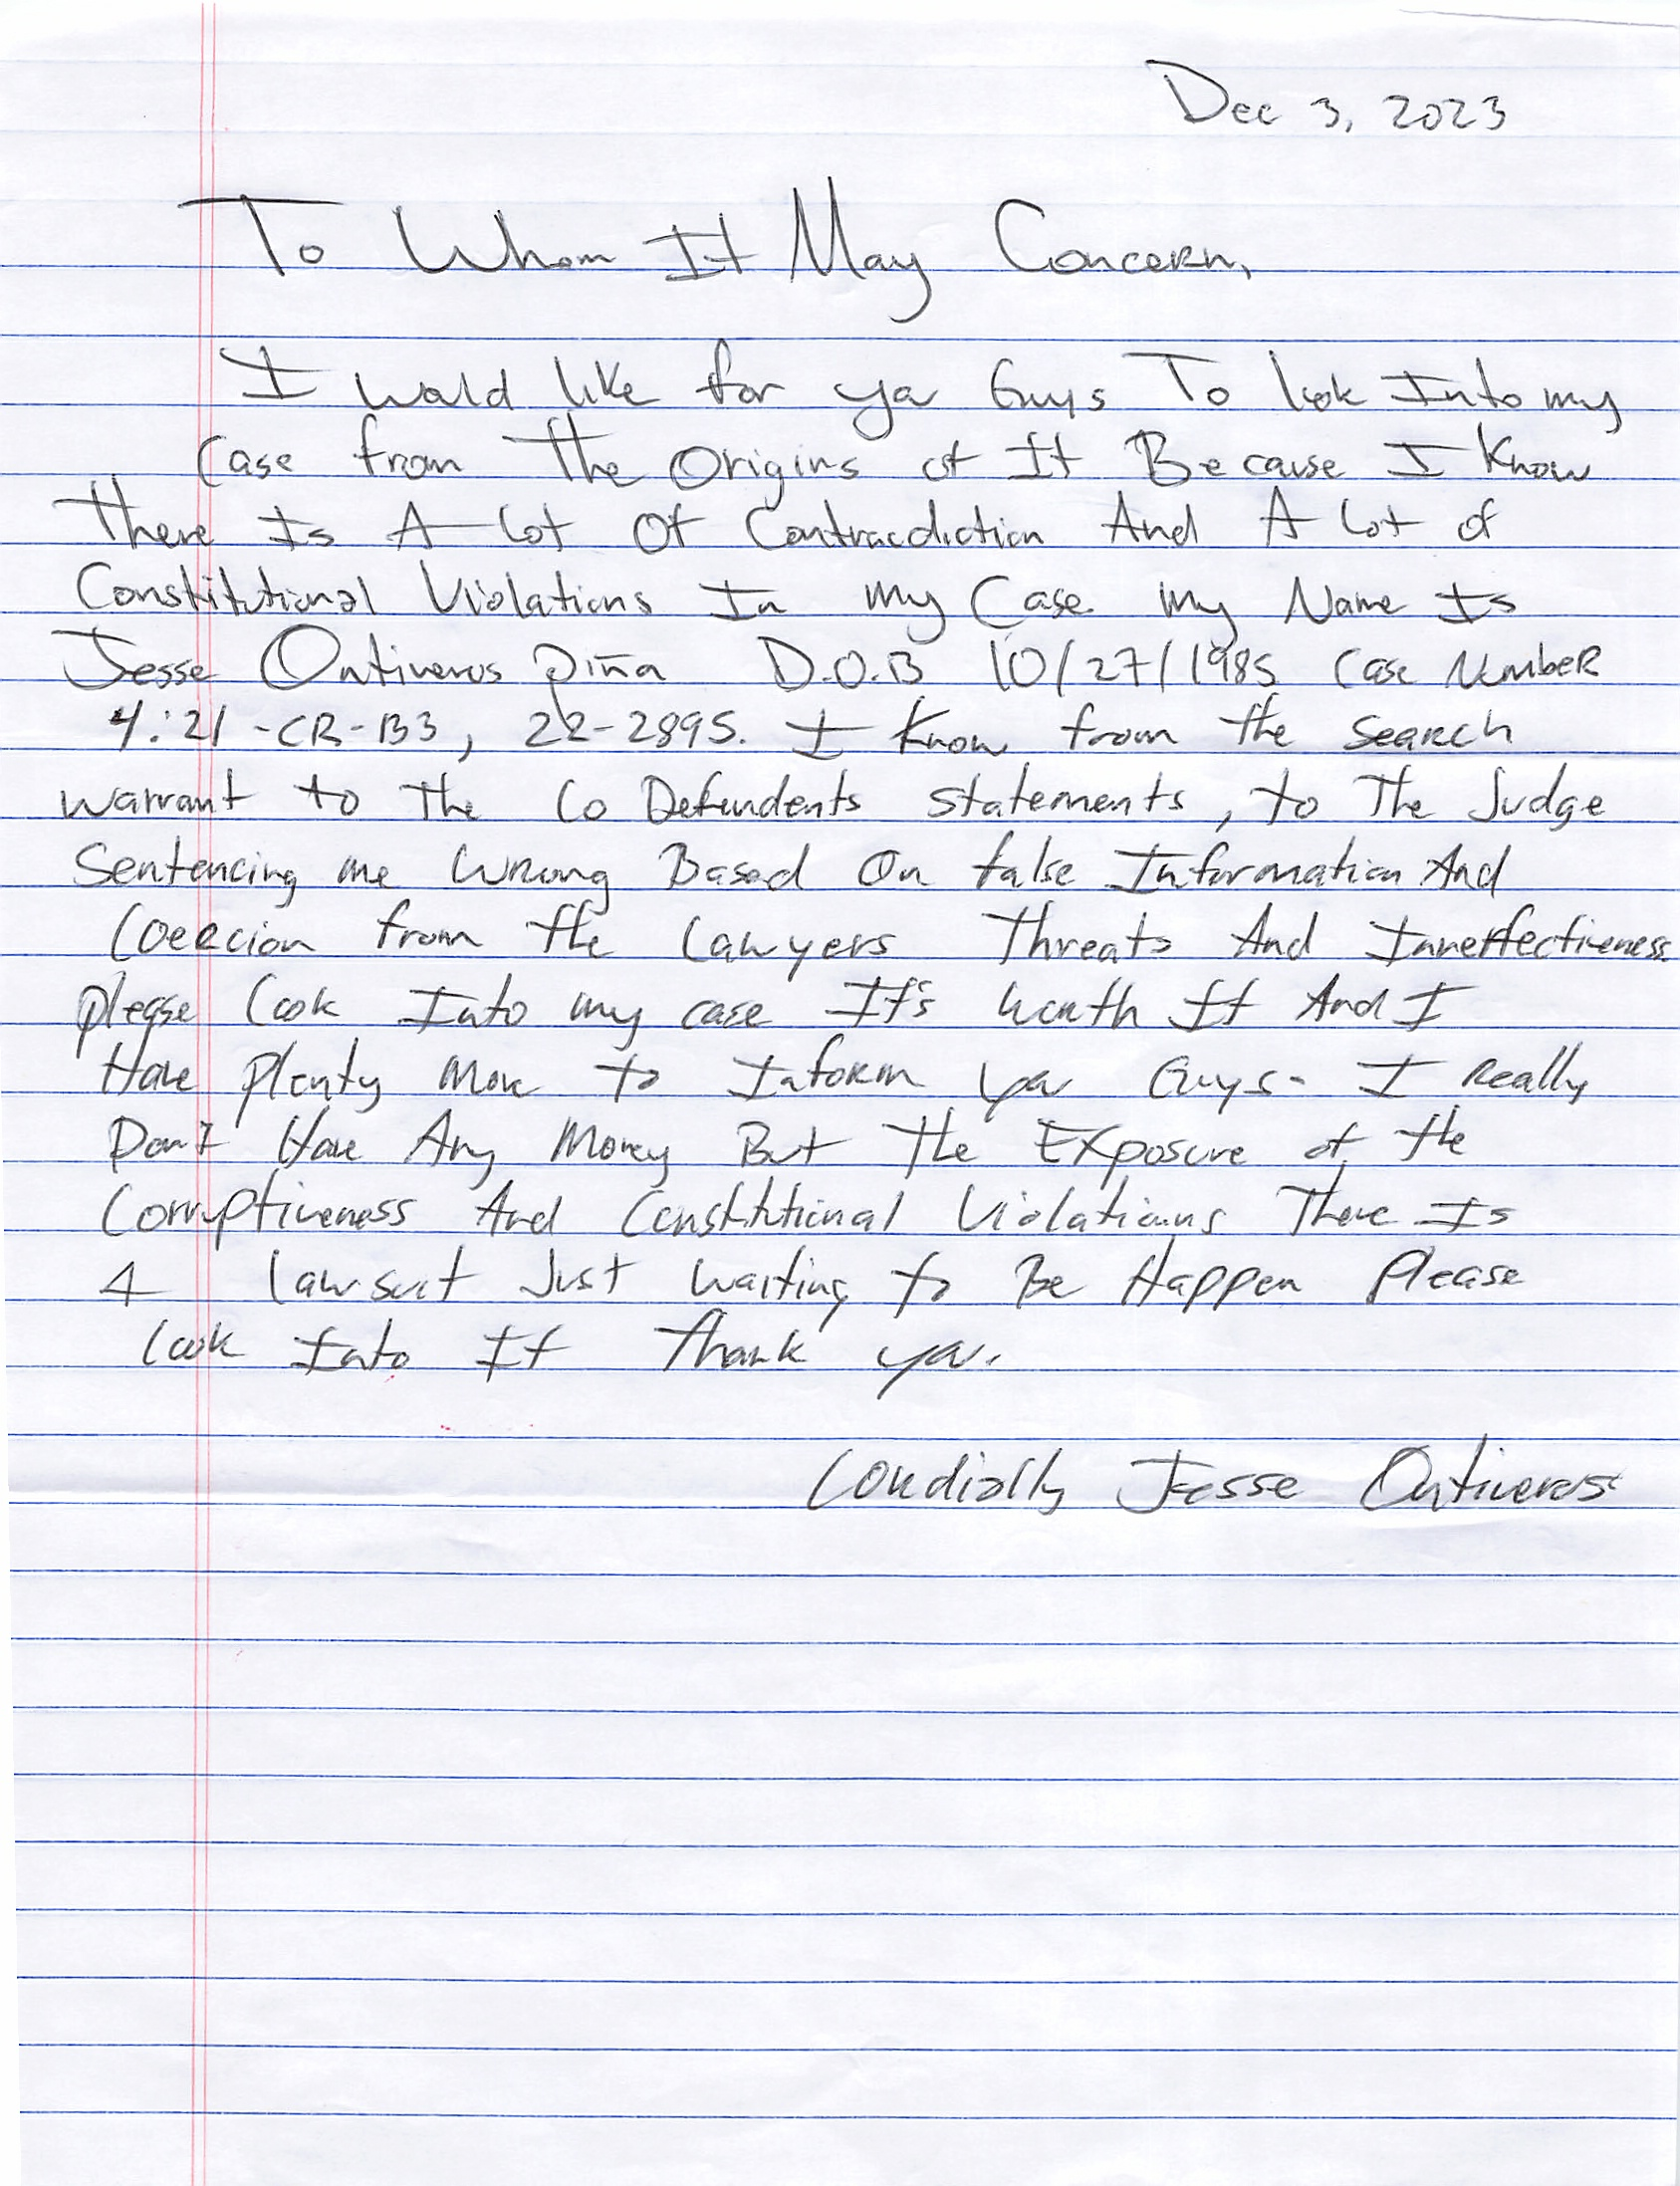 Dec 3, 2023
To Whom It May Concern,
I would like for ya Guys To look Into my
Case from The Origins of It Because I Know
There Is A Lot Of Contracdiction And A Lot of
Constitutional Violations In My Case. My Name Is
Jesse Ontiveros Piña D.O.B 10/27/1985 Case Number
4:21-CR-B3, 22-2895. I Know from the Search
warrant to The Co Defendents statements, to The Judge
Sentencing me Wrong Based On false Information And
Coercion from the Lawyers Threats And Inneffectiveness.
please Look Into my case It's Worth It And I
Have Plenty More to Inform ya Guys. I Really
Don't Have Any Money But The Exposure of the
Corruptiveness And Constitutional Violations There Is
A Lawsuit Just waiting to Be Happen Please
Look Into It Thank ya.
Cordially Jesse Ontiveros